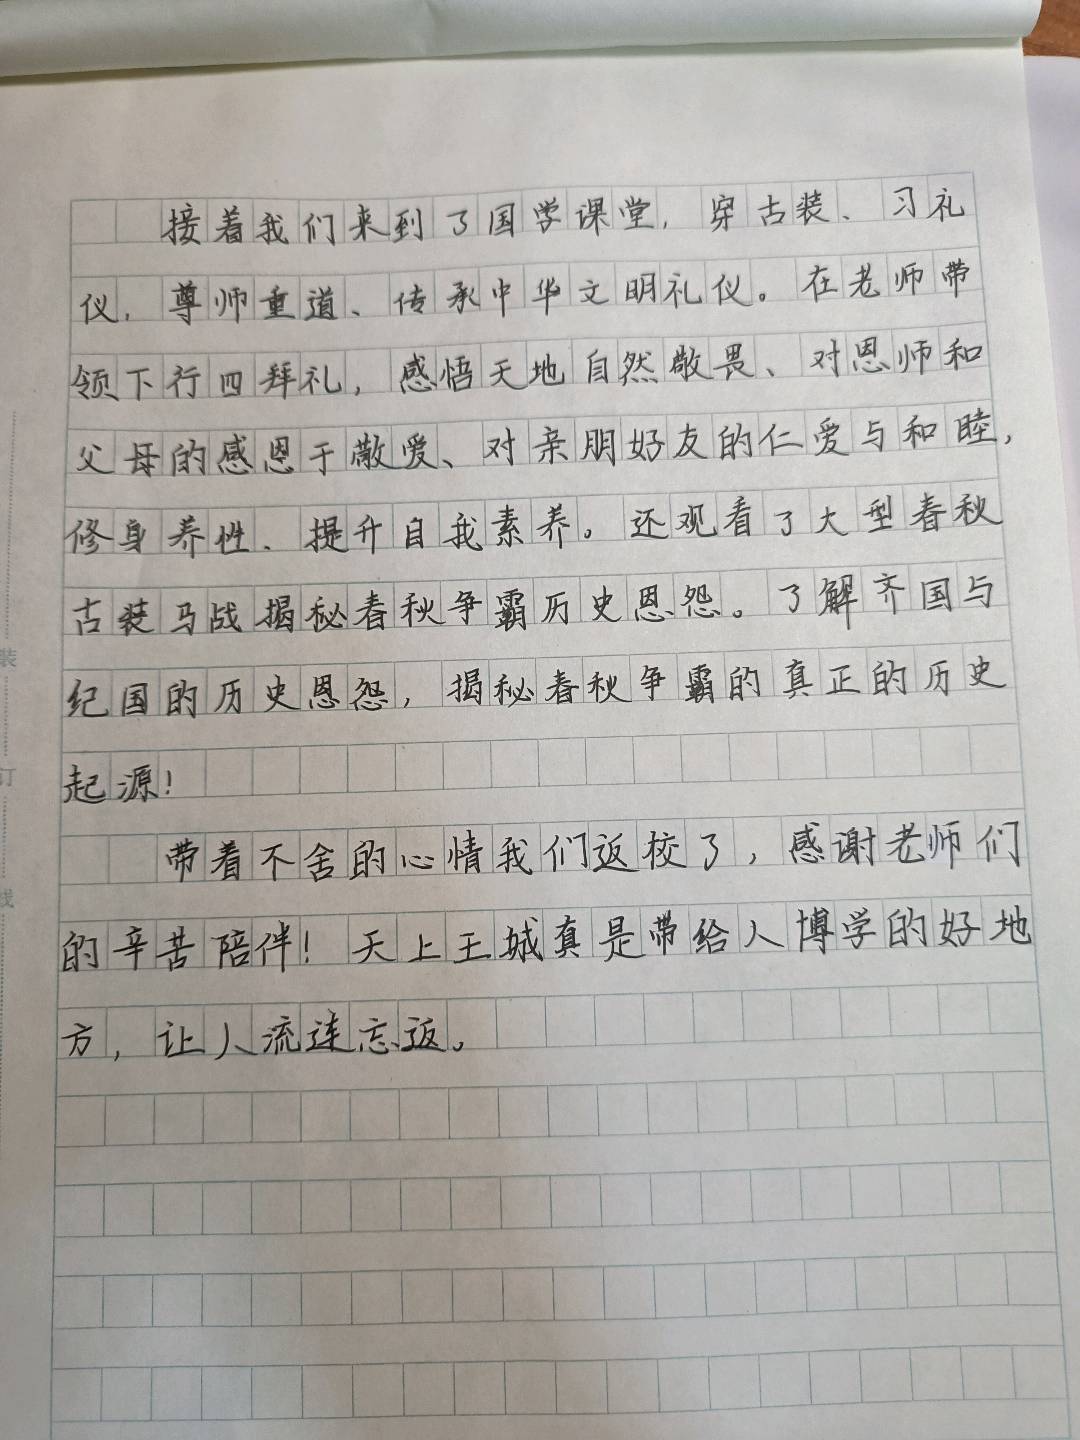 接着我们来到了国学课堂，穿古装、习礼
仪，尊师重道、传承中华文明礼仪。在老师带
领下行四拜礼，感悟天地自然敬畏、对恩师和
父母的感恩于敬爱、对亲朋好友的仁爱与和睦，
修身养性、提升自我素养。还观看了大型春秋
古装马战揭秘春秋争霸历史恩怨。了解齐国与
纪国的历史恩怨，揭秘春秋争霸的真正的历史
起源！
带着不舍的心情我们返校了，感谢老师们
的辛苦陪伴！天上王城真是带给人博学的好地
方，让人流连忘返。
装
订
线